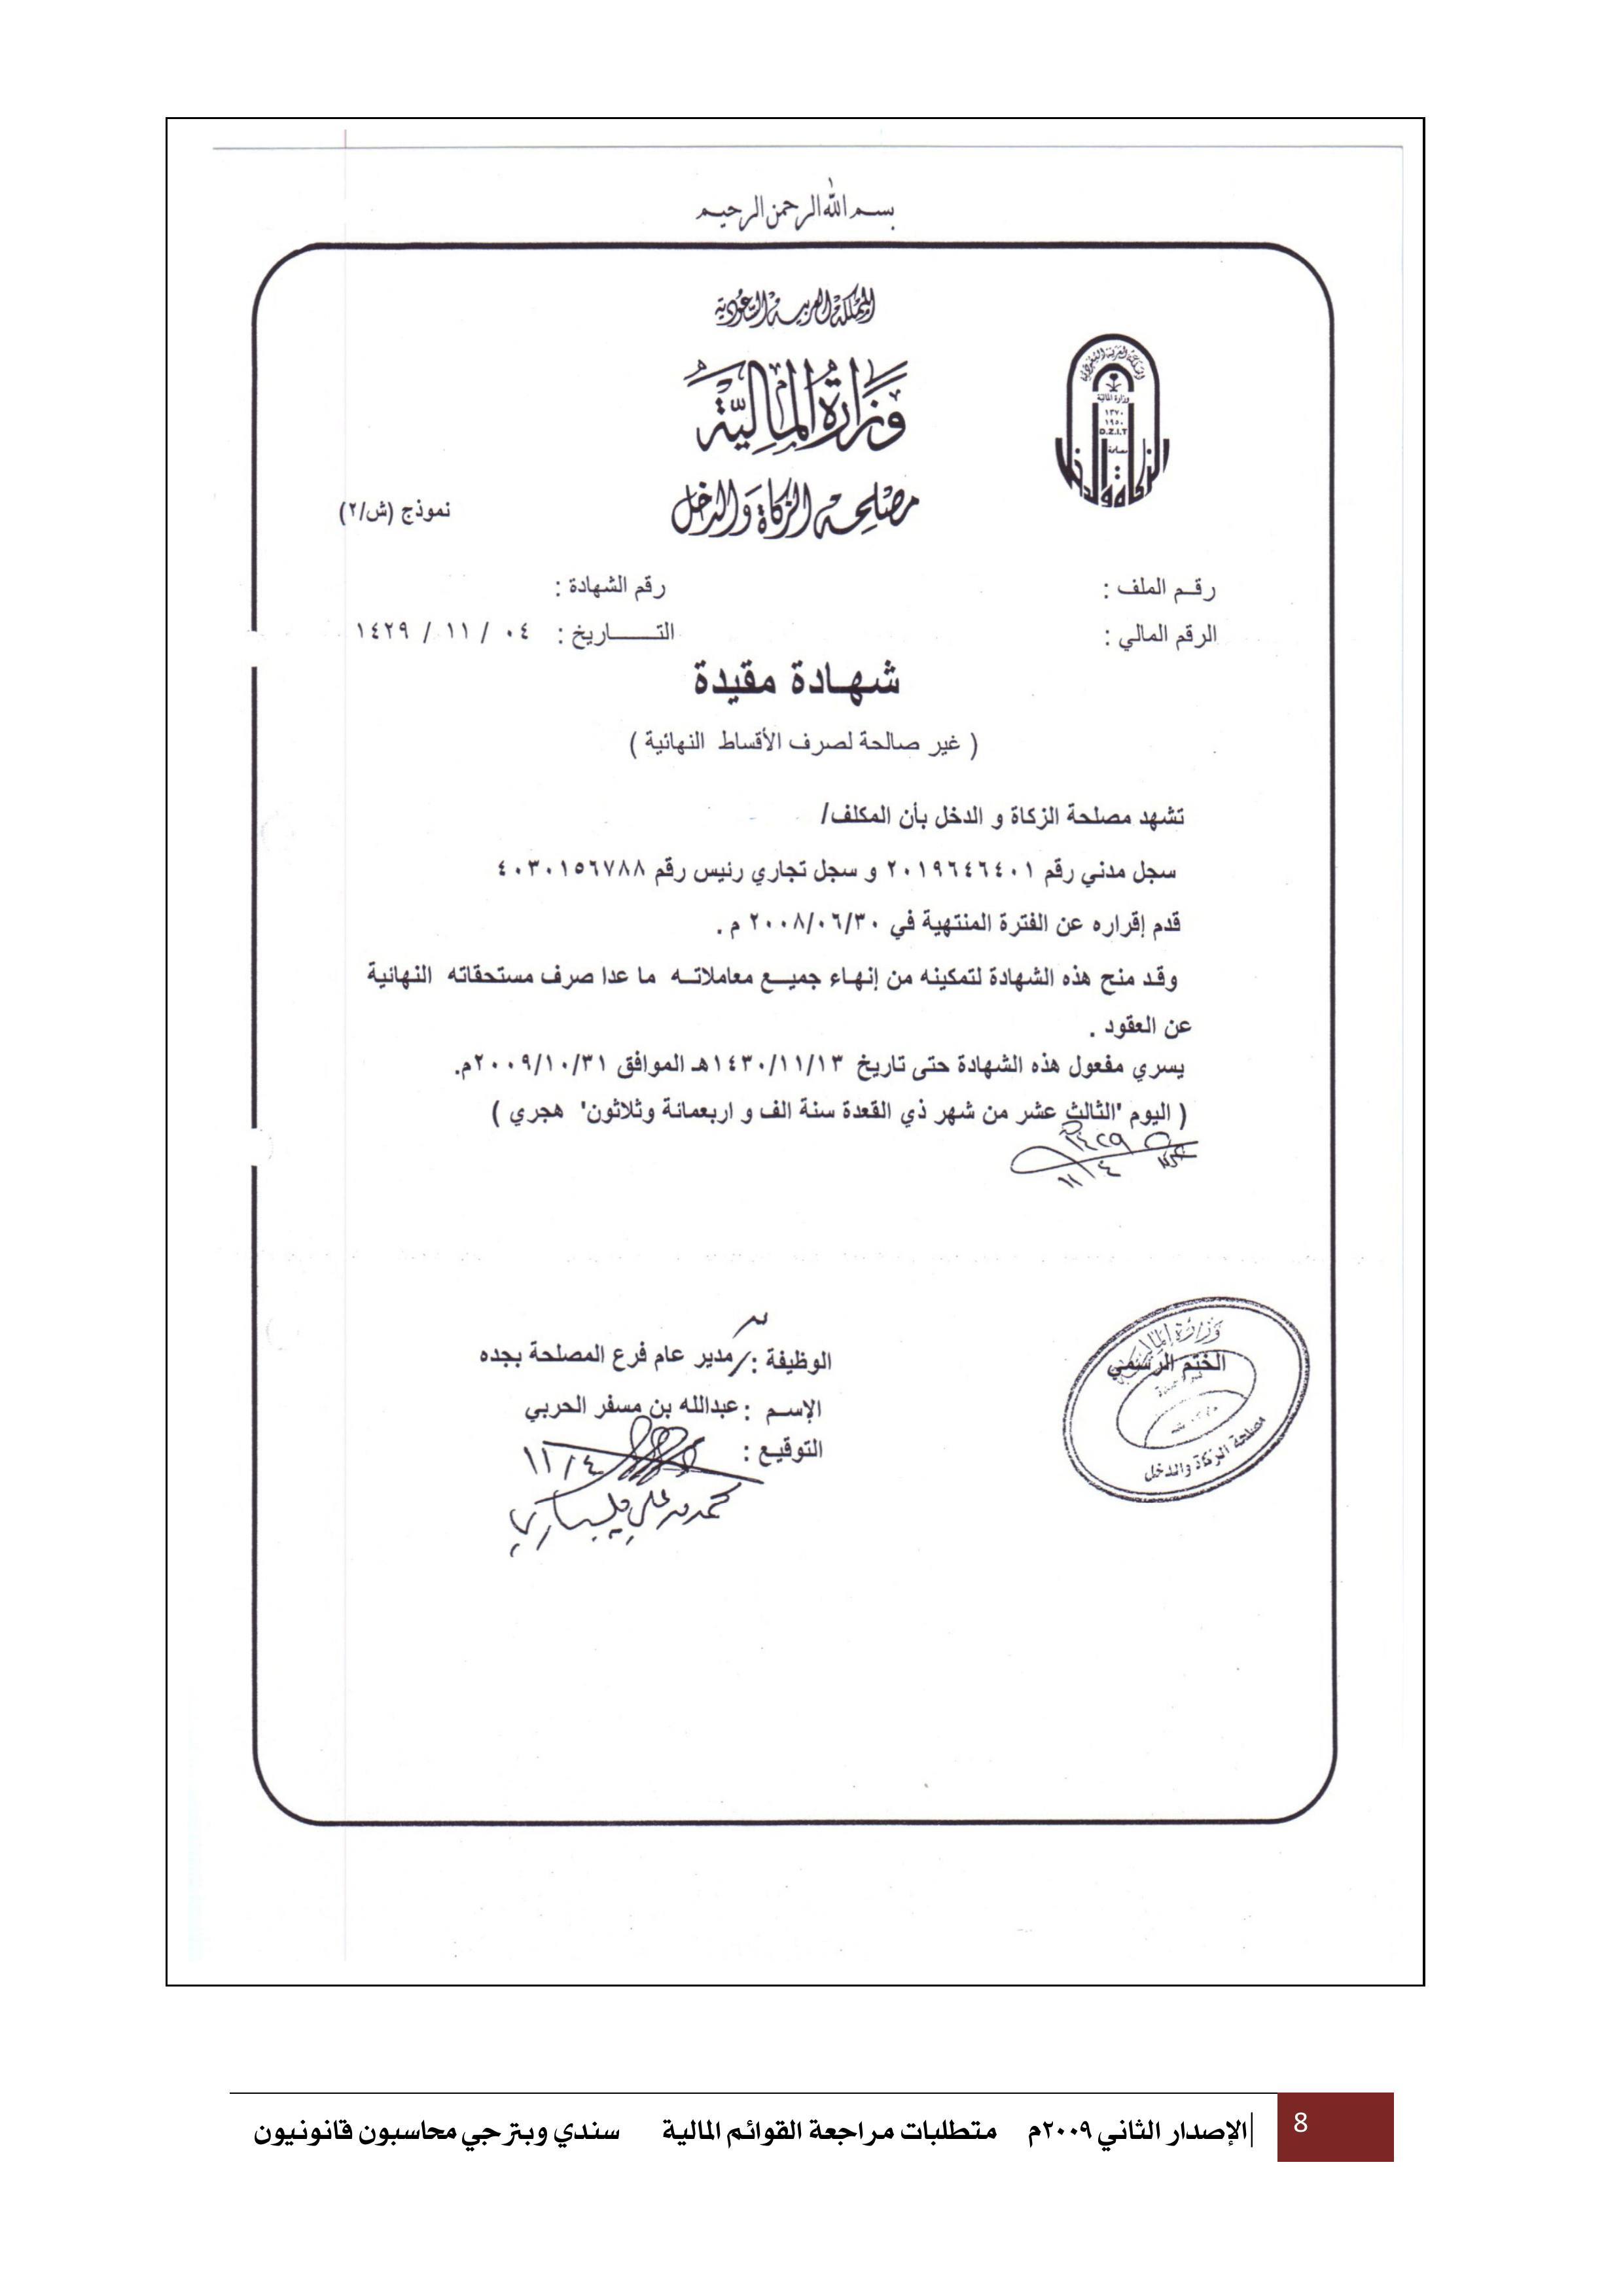 بسم الله الرحمن الرحيم
المملكة العربية السعودية
وزارة المالية
مصلحة الزكاة والدخل
وزارة المالية
١٣٧٠
١٩٥٠
D.Z.I.T
مصلحة
الزكاة والدخل
نموذج (ش/٢)
رقم الملف :
رقم الشهادة :
الرقم المالي :
التـــــــاريخ : ٠٤ / ١١ / ١٤٢٩
شهادة مقيدة
( غير صالحة لصرف الأقساط النهائية )
تشهد مصلحة الزكاة و الدخل بأن المكلف/
سجل مدني رقم ٢٠١٩٦٤٦٤٠١ و سجل تجاري رئيس رقم ٤٠٣٠١٥٦٧٨٨
قدم إقراره عن الفترة المنتهية في ٢٠٠٨/٠٦/٣٠ م .
وقد منح هذه الشهادة لتمكينه من إنهاء جميع معاملاته ما عدا صرف مستحقاته النهائية
عن العقود .
يسري مفعول هذه الشهادة حتى تاريخ ١٤٣٠/١١/١٣هـ الموافق ٢٠٠٩/١٠/٣١م.
( اليوم "الثالث عشر من شهر ذي القعدة سنة الف و اربعمائة وثلاثون" هجري )
١٤٢٩
١١/٤
الوظيفة : مدير عام فرع المصلحة بجده
الختم الرسمي
وزارة المالية
مصلحة الزكاة والدخل
الإسم : عبدالله بن مسفر الحربي
التوقيع :
١١/٤
8
الإصدار الثاني ٢٠٠٩م متطلبات مراجعة القوائم المالية سندي وبترجي محاسبون قانونيون